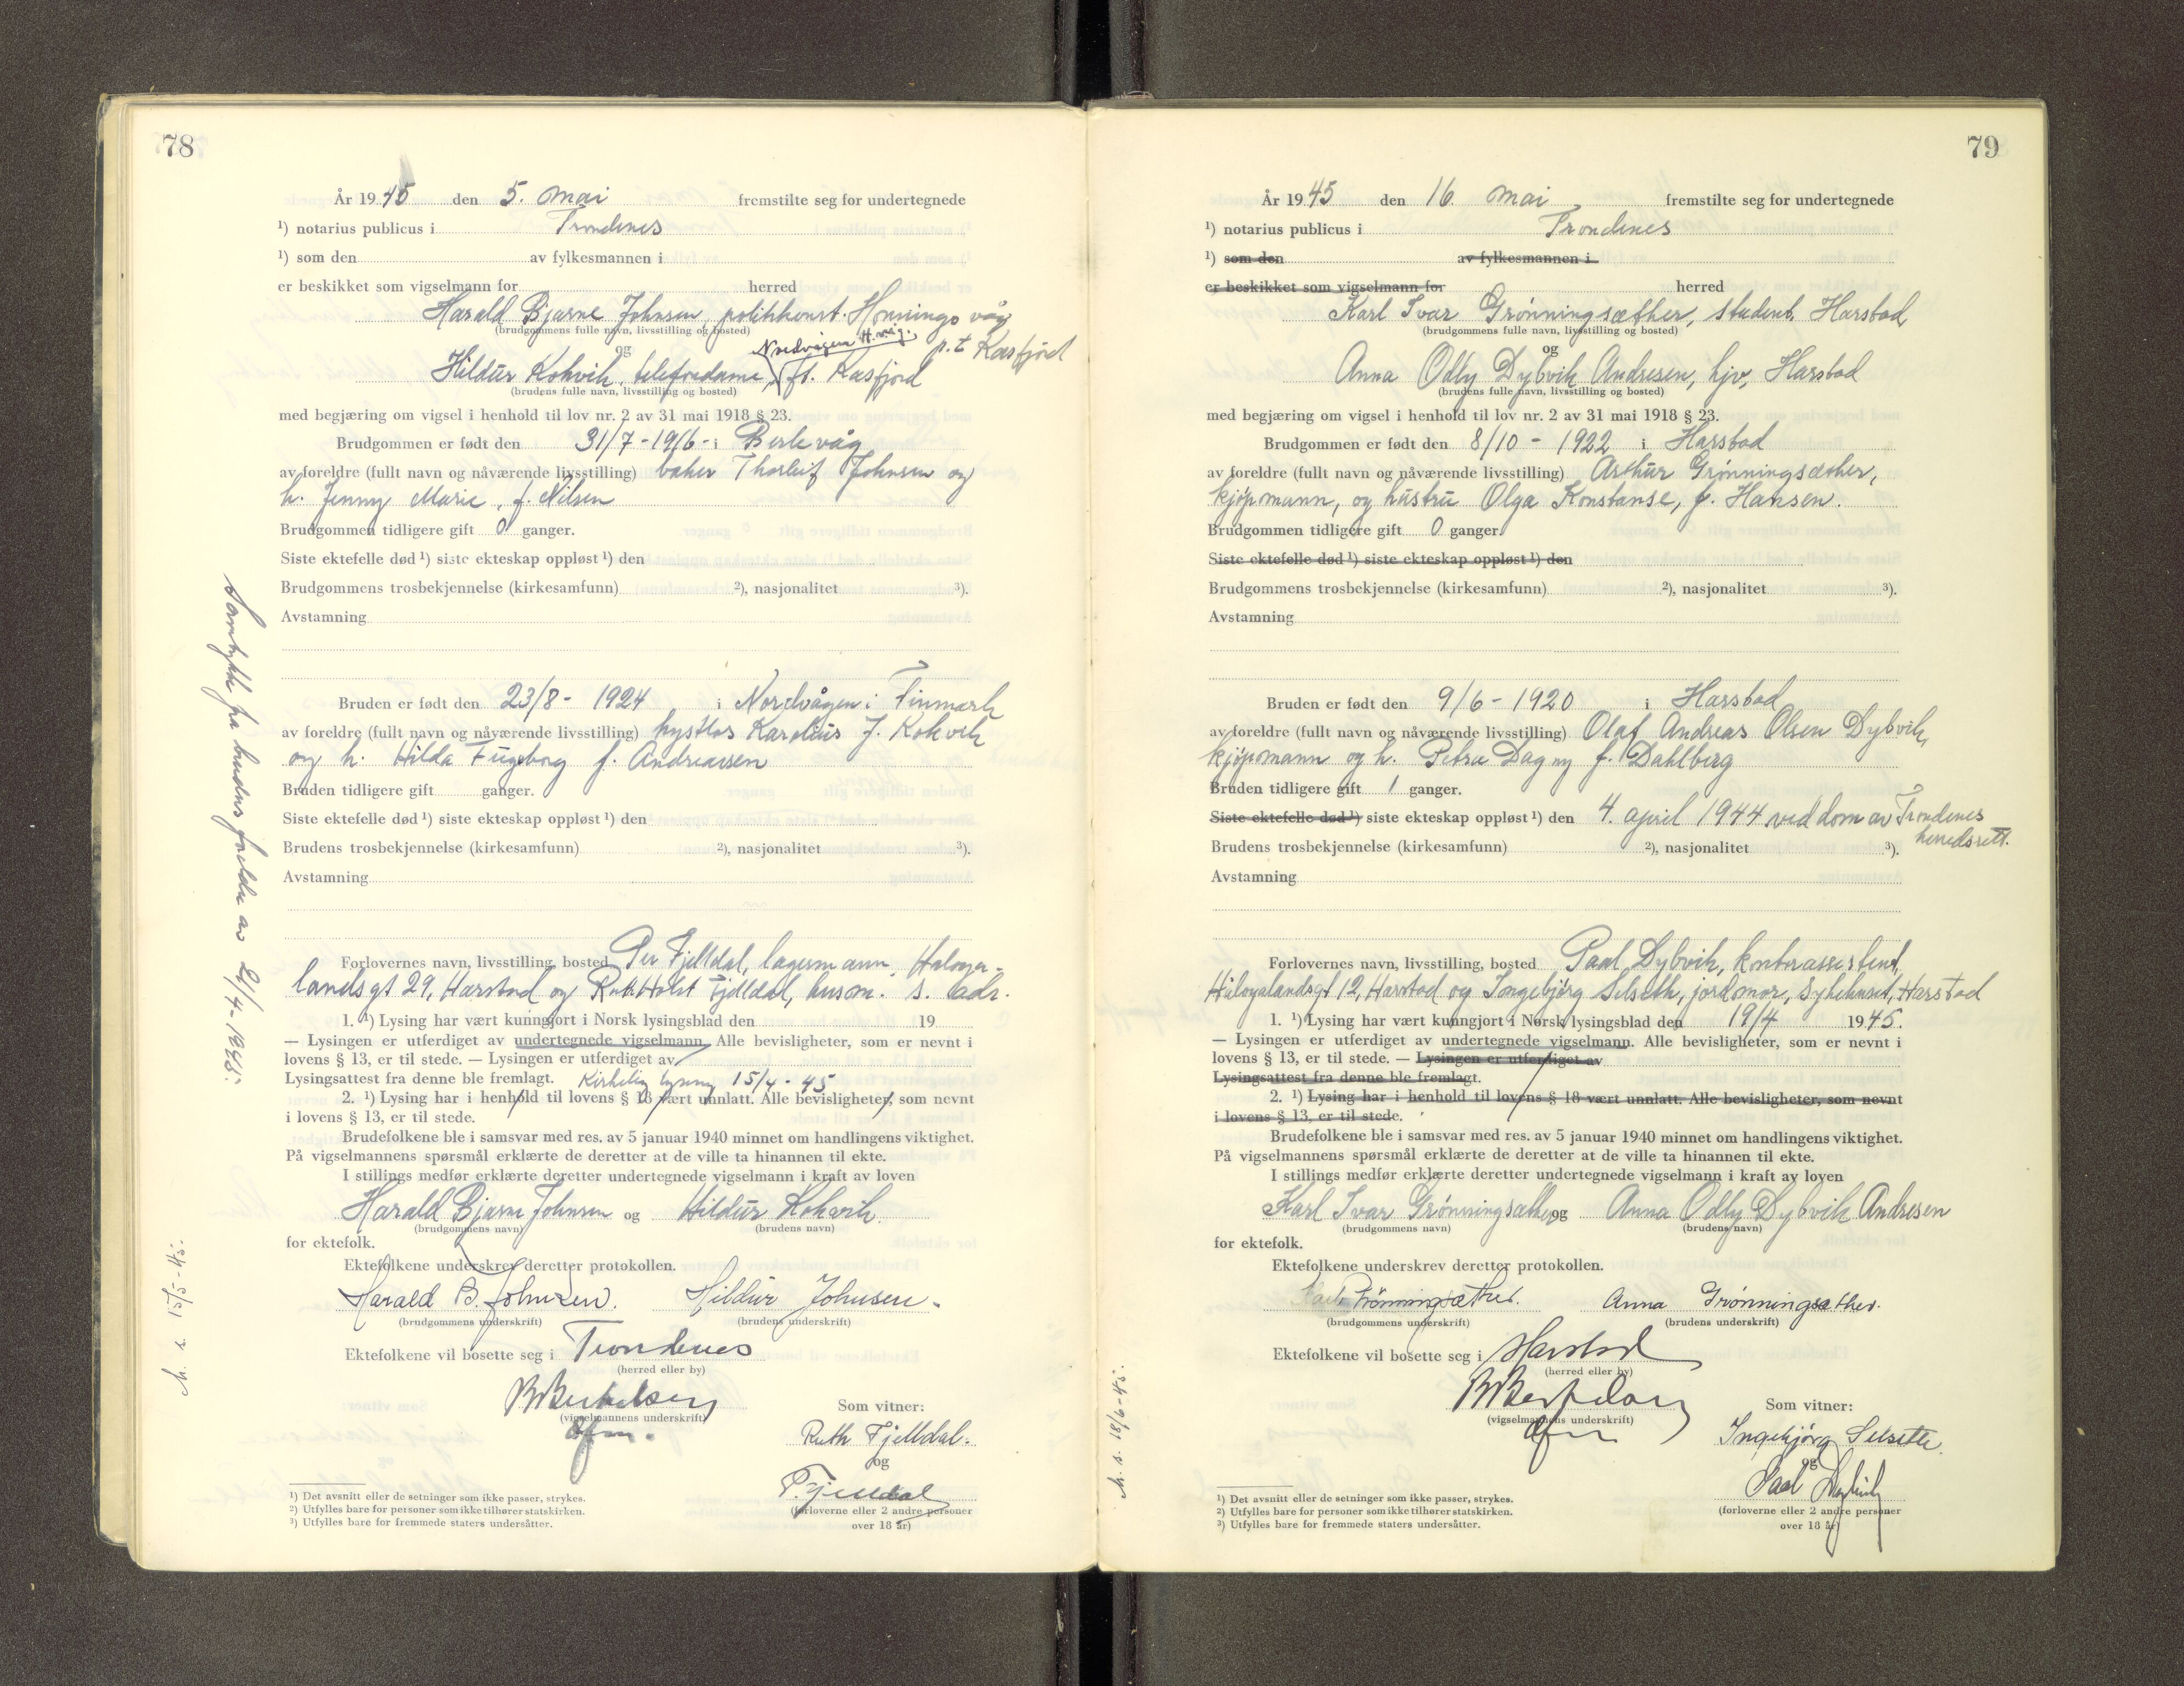 78
År 1945 den 5. mai fremstilte seg for undertegnede
¹) notarius publicus i Trondenes
¹) som den av fylkesmannen i
er beskikket som vigselmann for herred
Harald Bjarne Johnsen, politikonst. Honningsvåg
(brudgommens fulle navn, livsstilling og bosted)
p.t. Kasfjord
og
Nordvågen H.våg.
Hildur Kokvik, telefondame, ft. Kasfjord
(brudens fulle navn, livsstilling og bosted)
med begjæring om vigsel i henhold til lov nr. 2 av 31 mai 1918 § 23.
Brudgommen er født den 31/7-1916- i Berlevåg
av foreldre (fullt navn og nåværende livsstilling) baker Thorleif Johnsen og
h. Jenny Marie, f. Nilsen
Brudgommen tidligere gift 0 ganger.
Siste ektefelle død ¹) siste ekteskap oppløst ¹) den
Brudgommens trosbekjennelse (kirkesamfunn) ²), nasjonalitet ³).
Avstamning
Bruden er født den 23/8- 1924 i Nordvågen i Finmark
av foreldre (fullt navn og nåværende livsstilling) Karolius J. Kokvik
og h. Hilda f. Andreassen
Bruden tidligere gift ganger.
Siste ektefelle død ¹) siste ekteskap oppløst ¹) den
Brudens trosbekjennelse (kirkesamfunn) ²), nasjonalitet ³).
Avstamning
Samtykke fra brudens foreldre av
Forlovernes navn, livsstilling, bosted Per Fjelldal, lagermann, Haloga-
landsgt 29, Harstad og Ruth Holst Fjelldal, husm. s. adr.
1. ¹) Lysing har vært kunngjort i Norsk lysingsblad den 19
— Lysingen er utferdiget av undertegnede vigselmann. Alle bevisligheter, som er nevnt i
lovens § 13, er til stede. — Lysingen er utferdiget av
Lysingsattest fra denne ble fremlagt. Kirkelig lysning 15/4-45
2. ¹) Lysing har i henhold til lovens § 18 vært unnlatt. Alle bevisligheter, som nevnt
i lovens § 13, er til stede.
Brudefolkene ble i samsvar med res. av 5 januar 1940 minnet om handlingens viktighet.
På vigselmannens spørsmål erklærte de deretter at de ville ta hinannen til ekte.
I stillings medfør erklærte deretter undertegnede vigselmann i kraft av loven
Harald Bjarne Johnsen og Hildur Kokvik
(brudgommens navn) (brudens navn)
for ektefolk.
Ektefolkene underskrev deretter protokollen.
Harald B. Johnsen. Hildur Johnsen.
(brudgommens underskrift) (brudens underskrift)
Ektefolkene vil bosette seg i Trondenes
(herred eller by)
(vigselmannens underskrift)
Som vitner:
Ruth Fjelldal.
og
P. Fjelldal
(forloverne eller 2 andre personer
over 18 år)
m. s. 15/5-45.
¹) Det avsnitt eller de setninger som ikke passer, strykes.
²) Utfylles bare for personer som ikke tilhører statskirken.
³) Utfylles bare for fremmede staters undersåtter.
79
År 1945 den 16. mai fremstilte seg for undertegnede
¹) notarius publicus i Trondenes
¹) som den av fylkesmannen i
er beskikket som vigselmann for herred
Karl Ivar Grønningsæther, student, Harstad
(brudgommens fulle navn, livsstilling og bosted)
og
Anna Odly Dybvik Andresen, hjv, Harstad
(brudens fulle navn, livsstilling og bosted)
med begjæring om vigsel i henhold til lov nr. 2 av 31 mai 1918 § 23.
Brudgommen er født den 8/10 - 1922 i Harstad
av foreldre (fullt navn og nåværende livsstilling) Arthur Grønningsæther,
kjøpmann, og hustru Olga Konstanse, f. Hansen.
Brudgommen tidligere gift 0 ganger.
Siste ektefelle død ¹) siste ekteskap oppløst ¹) den
Brudgommens trosbekjennelse (kirkesamfunn) ²), nasjonalitet ³).
Avstamning
Bruden er født den 9/6 - 1920 i Harstad
av foreldre (fullt navn og nåværende livsstilling) Olaf Andreas Olsen Dybvik,
kjøpmann og h. Petra Dagny f. Dahlberg
Bruden tidligere gift 1 ganger.
Siste ektefelle død ¹) siste ekteskap oppløst ¹) den 4. april 1944 ved dom av Trondenes
herredsrett.
Brudens trosbekjennelse (kirkesamfunn) ²), nasjonalitet ³).
Avstamning
Forlovernes navn, livsstilling, bosted Paal Dybvik, kontorassistent,
Hålogalandsgt 12, Harstad og Ingebjørg Selseth, jordmor, Sykehuset, Harstad
1. ¹) Lysing har vært kunngjort i Norsk lysingsblad den 19/4 1945.
— Lysingen er utferdiget av undertegnede vigselmann. Alle bevisligheter, som er nevnt i
lovens § 13, er til stede. — Lysingen er utferdiget av
Lysingsattest fra denne ble fremlagt.
2. ¹) Lysing har i henhold til lovens § 18 vært unnlatt. Alle bevisligheter, som nevnt
i lovens § 13, er til stede.
Brudefolkene ble i samsvar med res. av 5 januar 1940 minnet om handlingens viktighet.
På vigselmannens spørsmål erklærte de deretter at de ville ta hinannen til ekte.
I stillings medfør erklærte deretter undertegnede vigselmann i kraft av loven
Karl Ivar Grønningsæther og Anna Odly Dybvik Andresen
(brudgommens navn) (brudens navn)
for ektefolk.
Ektefolkene underskrev deretter protokollen.
Grønningsæther. Anna Grønningsæther.
(brudgommens underskrift) (brudens underskrift)
Ektefolkene vil bosette seg i Harstad
(herred eller by)
(vigselmannens underskrift)
Som vitner:
Ingebjørg Selseth.
og
Paal Dybvik
(forloverne eller 2 andre personer
over 18 år)
m. s. 18/6-45.
¹) Det avsnitt eller de setninger som ikke passer, strykes.
²) Utfylles bare for personer som ikke tilhører statskirken.
³) Utfylles bare for fremmede staters undersåtter.